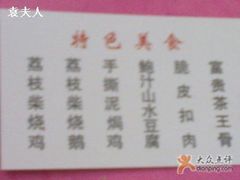 袁夫人
特色美食
荔枝柴烧鸡
荔枝柴烧鹅
手撕泥焗鸡
鲍汁山水豆腐
脆皮扣肉
富贵茶王骨
大众点评
dianping.com